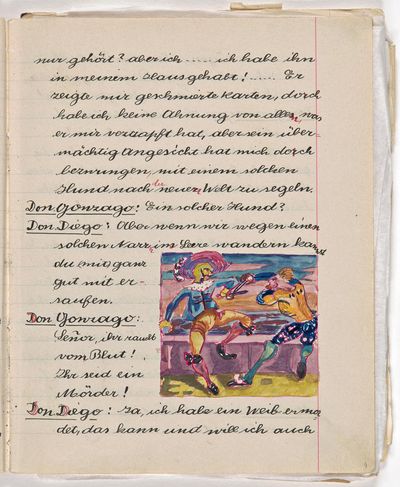 nur gehört? aber ich ..... ich habe ihn
in meinem Haus gehabt! ..... Er
zeigte mir geschmierte Karten, doch
habe ich keine Ahnung von alles, was
er mir vorzapft hat, aber sein über-
mächtig Angesicht hat mich doch
bezwungen, mit einem solchen
Hund nach der neuen Welt zu segeln.
Don Gonzago: Ein solcher Hund?
Don Diego: Aber wenn wir wegen einen
solchen Narr im Leere wandern kannst
du mir ganz
gut mit er-
saufen.
Don Gonzago:
Señor, ihr raucht
vom Blut!
Ihr seid ein
Mörder!
Don Diego: Ja, ich habe ein Weib ermor
det, das kann und will ich auch